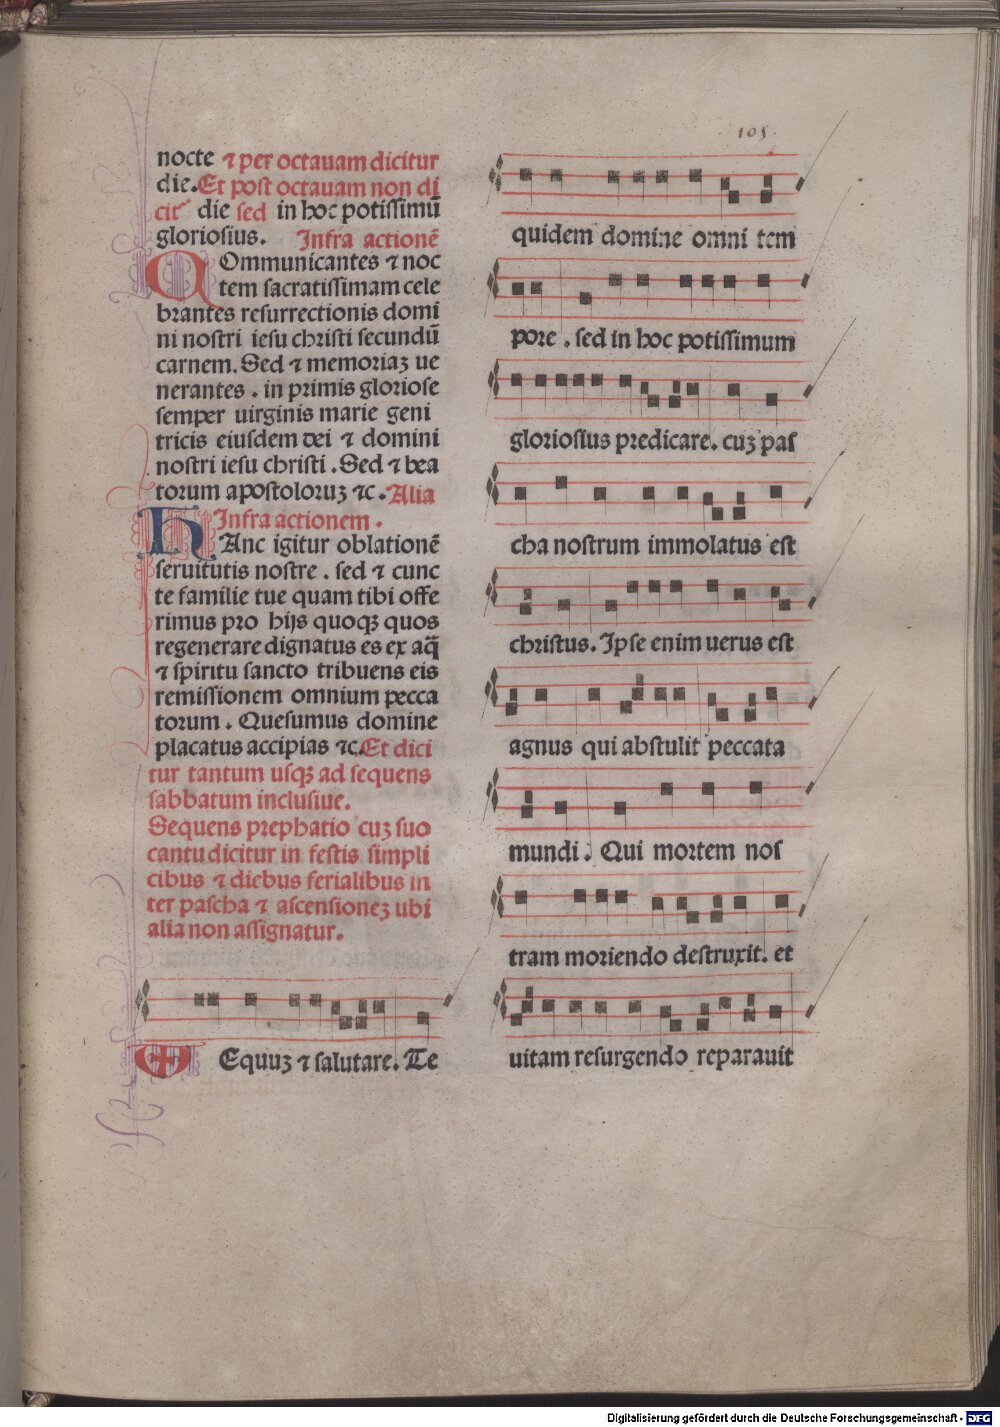 105.
nocte ⁊ per octauam dicitur
die. Et post octauam non di
cit᷑ die sed in hoc potissimū
gloriosius. Infra actionē
COmmunicantes ⁊ noc
tem sacratissimam cele
brantes resurrectionis domi
ni nostri iesu christi secundū
carnem. Sed ⁊ memoriaꝫ ue
nerantes . in primis gloriose
semper uirginis marie geni
tricis eiusdem dei ⁊ domini
nostri iesu christi . Sed ⁊ bea
torum apostoloruꝫ ⁊c . Alia
Infra actionem .
HAnc igitur oblationē
seruitutis nostre . sed ⁊ cunc
te familie tue quam tibi offe
rimus pro hijs quoqꝫ quos
regenerare dignatus es ex aq̄
⁊ spiritu sancto tribuens eis
remissionem omnium pecca
torum . Quesumus domine
placatus accipias ⁊c. Et dici
tur tantum usqꝫ ad sequens
sabbatum inclusiue.
Sequens prephatio cuꝫ suo
cantu dicitur in festis simpli
cibus ⁊ diebus ferialibus in
ter pascha ⁊ ascensioneꝫ ubi
alia non assignatur.
Equuꝫ ⁊ salutare. Te
quidem domine omni tem
pore . sed in hoc potissimum
gloriosius predicare. cuꝫ pas
cha nostrum immolatus est
christus. Ipse enim uerus est
agnus qui abstulit peccata
mundi . Qui mortem nos
tram moriendo destruxit. et
uitam resurgendo reparauit
Digitalisierung gefördert durch die Deutsche Forschungsgemeinschaft - DFG